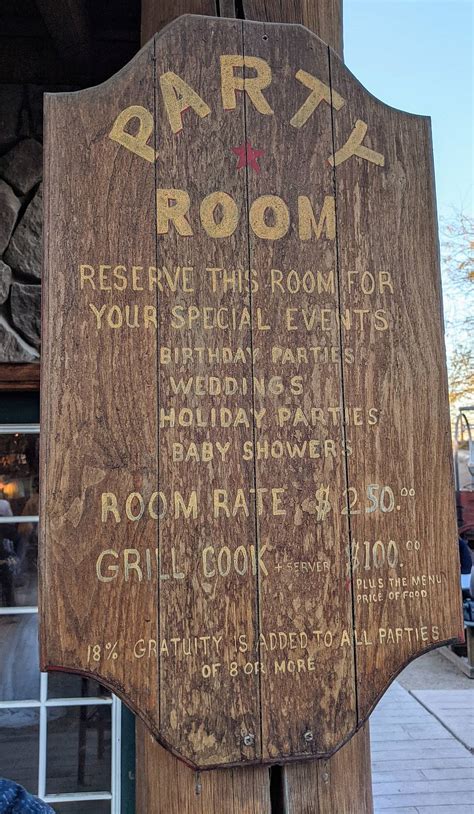 PARTY
ROOM
RESERVE THIS ROOM FOR
YOUR SPECIAL EVENTS
BIRTHDAY PARTIES
WEDDINGS
HOLIDAY PARTIES
BABY SHOWERS
ROOM RATE $250.00
GRILL COOK + SERVER $100.00
PLUS THE MENU
PRICE OF FOOD
18% GRATUITY IS ADDED TO ALL PARTIES
OF 8 OR MORE